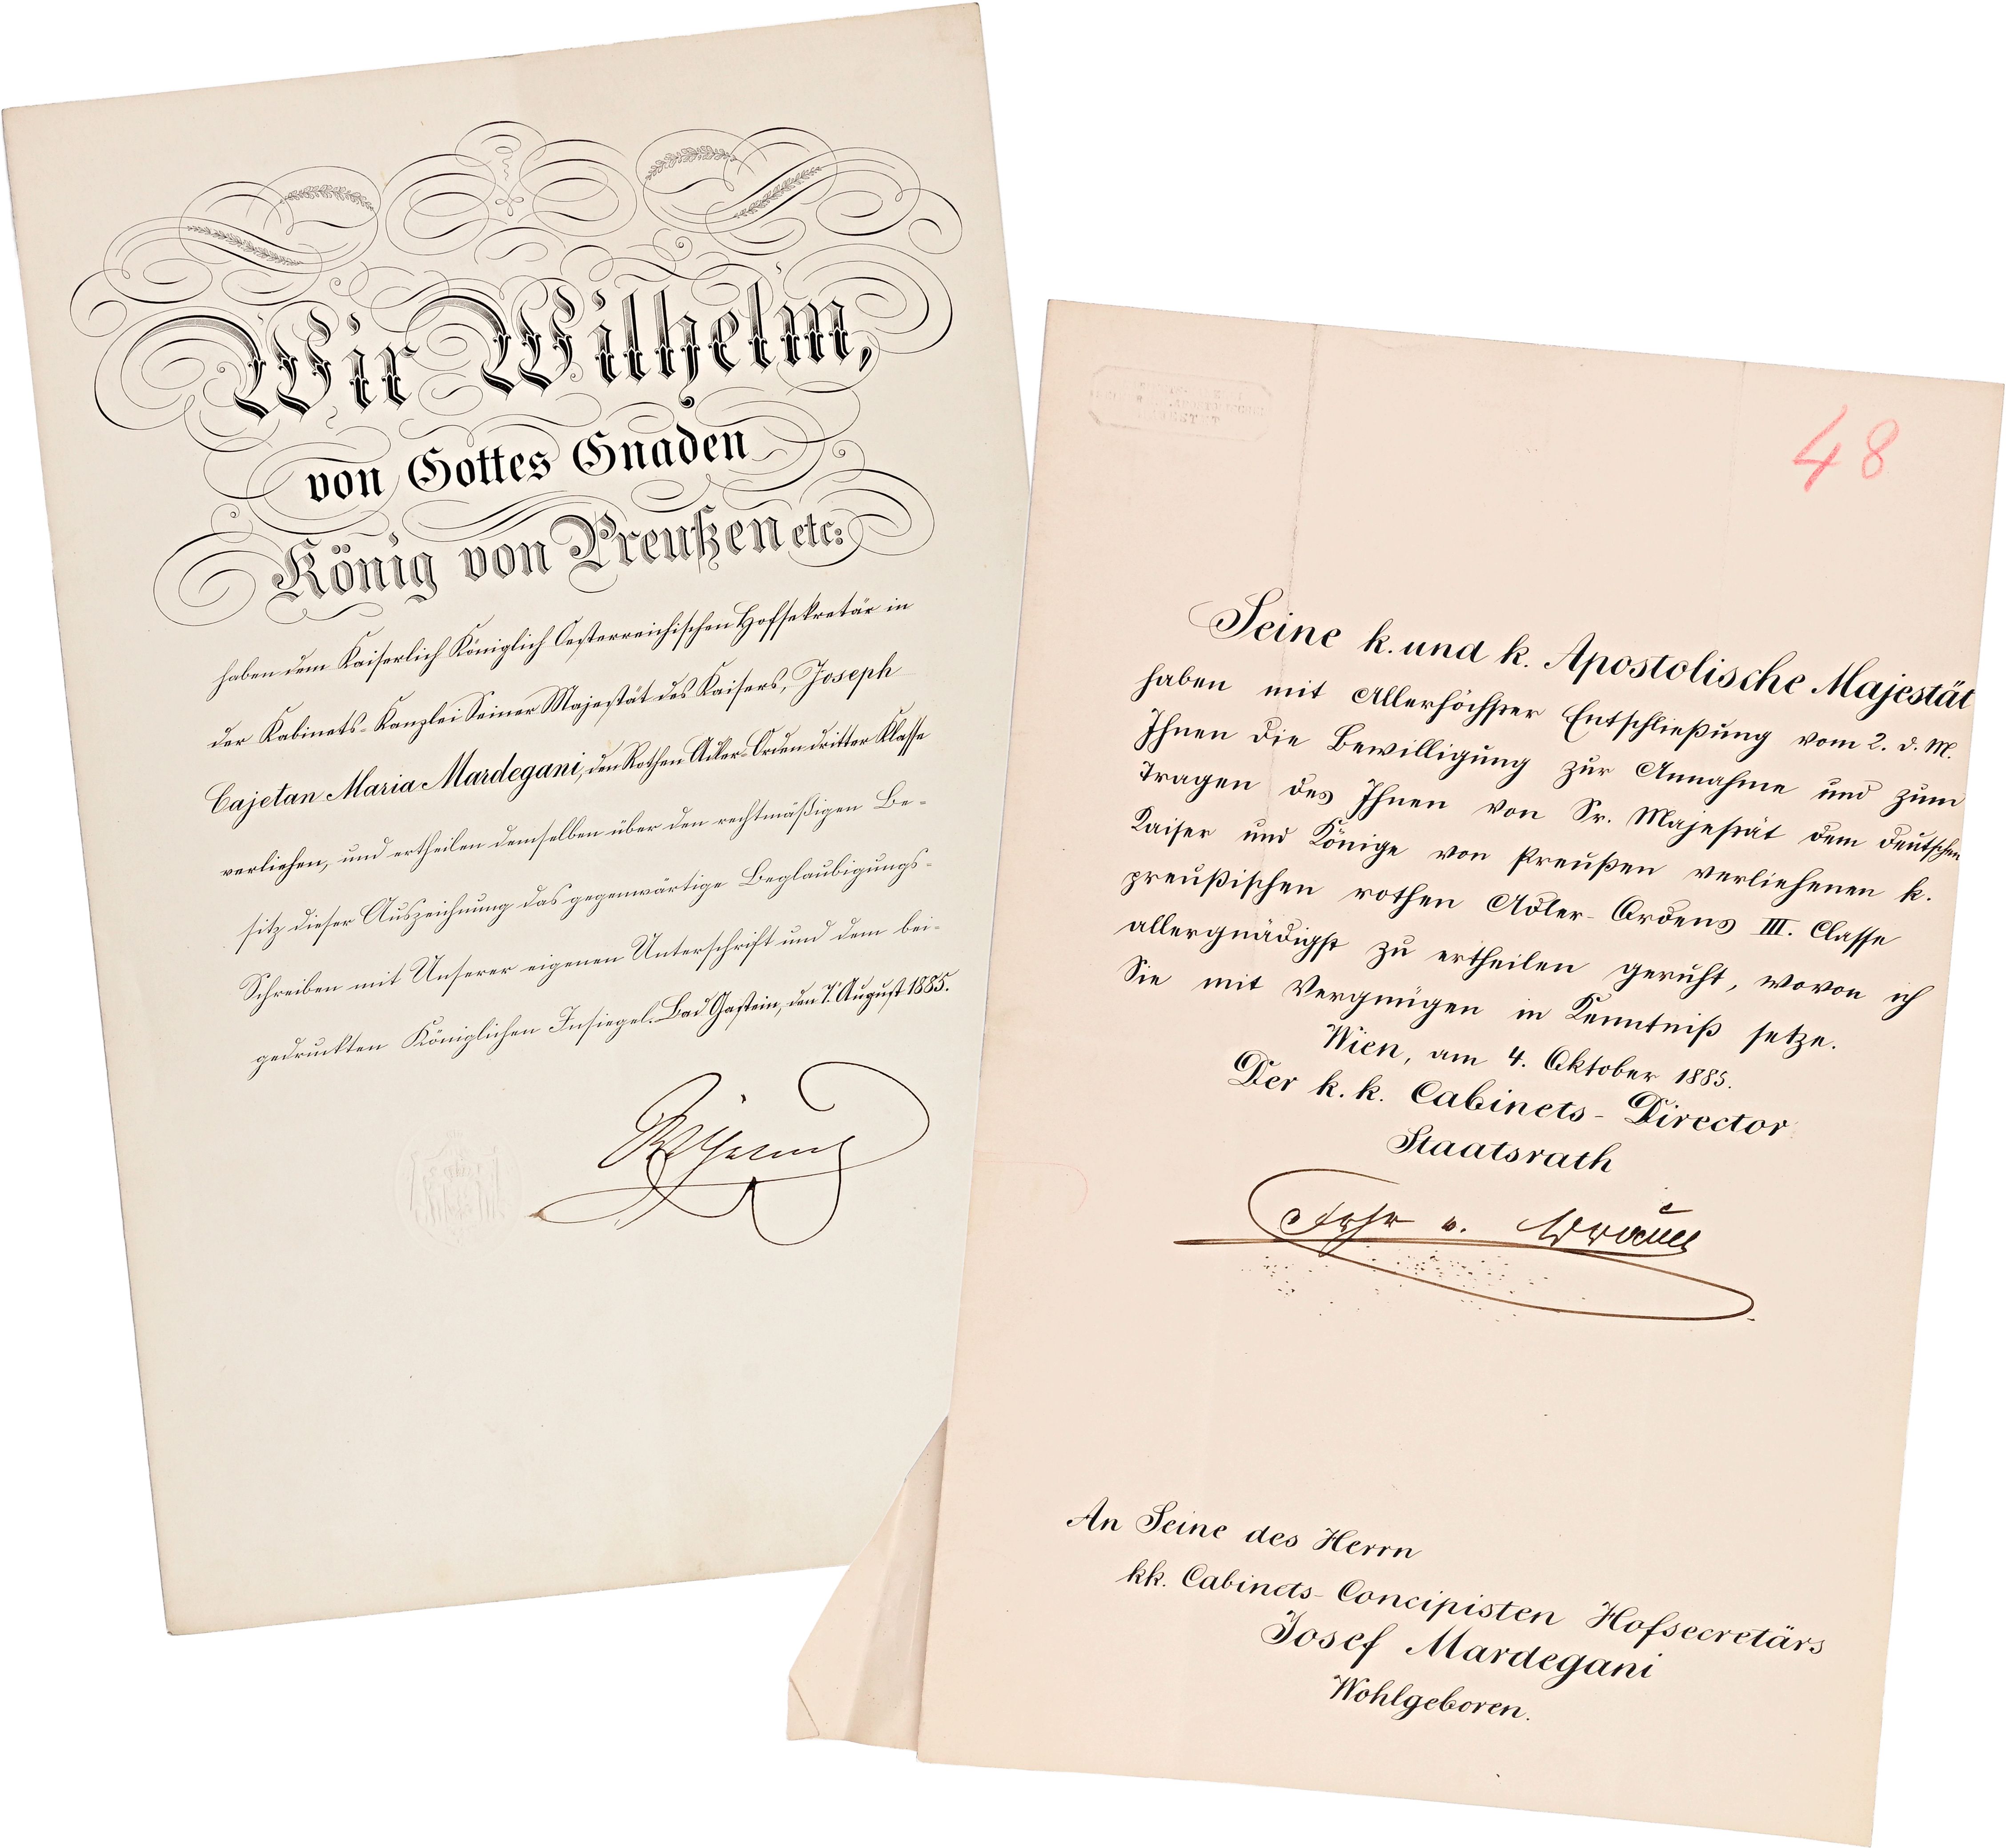 Wir Wilhelm,
von Gottes Gnaden
König von Preußen etc:
haben dem Kaiserlich Königlich Oesterreichischen Hofsekretär in
der Kabinets-Kanzlei Seiner Majestät des Kaisers, Joseph
Cajetan Maria Mardegani, den Rothen Adler-Orden dritter Klasse
verliehen, und ertheilen demselben über den rechtmäßigen Be-
sitz dieser Auszeichnung das gegenwärtige Beglaubigungs-
Schreiben mit Unserer eigenen Unterschrift und dem bei-
gedruckten Königlichen Insiegel. Bad Gastein, den 7. August 1885.
Wilhelm
48
Seine k. und k. Apostolische Majestät
haben mit Allerhöchster Entschließung vom 2. d. M.
Ihnen die Bewilligung zur Annahme und zum
Tragen des Ihnen von Sr. Majestät dem deutschen
Kaiser und Könige von Preußen verliehenen k.
preußischen rothen Adler-Ordens III. Classe
allergnädigst zu ertheilen geruht, wovon ich
Sie mit Vergnügen in Kenntniß setze.
Wien, am 4. Oktober 1885.
Der k. k. Cabinets-Director
Staatsrath
Frhr v. Braun
An Seine des Herrn
kk. Cabinets-Concipisten Hofsecretärs
Josef Mardegani
Wohlgeboren.